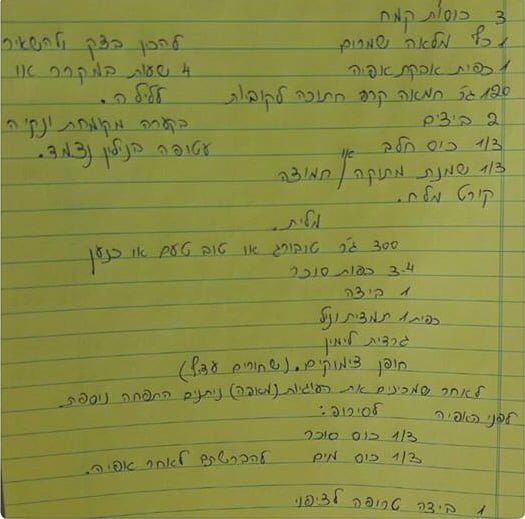 3 כוסות קמח
1 כף מלאה שמרים
1 כפית אבקת אפיה
120 גר' חמאה קרה חתוכה לקוביות
2 ביצים
1/3 כוס חלב או
1/3 שמנת מתוקה / חמוצה
קורט מלח.
להכין בצק ולהשאיר
4 שעות במקרר או
לילה.
בקערה מקומחת ונקיה
עטופה בנילון נצמד.
מלית.
300 גר' טובורג או טוב טעם או כנען
3-4 כפות סוכר
1 ביצה
כפית 1 תמצית וניל
גרדית לימון
חופן צימוקים. (שחורים עדיף)
לאחר שמכינים את העוגיות (מאפה) ניתנים התפחה נוספת.
לפני האפיה לסירופ:
1/3 כוס סוכר
1/3 כוס מים להברשתם לאחר אפיה.
1 ביצה טרופה לציפוי